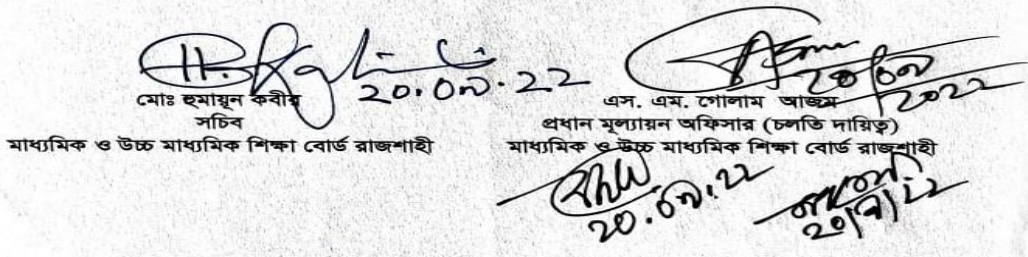 ২০.০৯.২২
মোঃ হুমায়ুন কবীর
সচিব
মাধ্যমিক ও উচ্চ মাধ্যমিক শিক্ষা বোর্ড রাজশাহী
২০/০৯/২০২২
এস. এম. গোলাম আজম
প্রধান মূল্যায়ন অফিসার (চলতি দায়িত্ব)
মাধ্যমিক ও উচ্চ মাধ্যমিক শিক্ষা বোর্ড রাজশাহী
২০.০৯.২২
২০/৯/২২